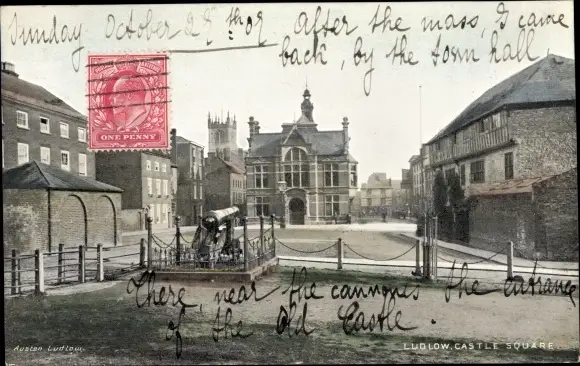 Sunday October 25th 09 After the mass, I came
back, by the town hall
ONE PENNY
There, near the cannon is the entrance
of the Old Castle.
Austen Ludlow.
LUDLOW, CASTLE SQUARE